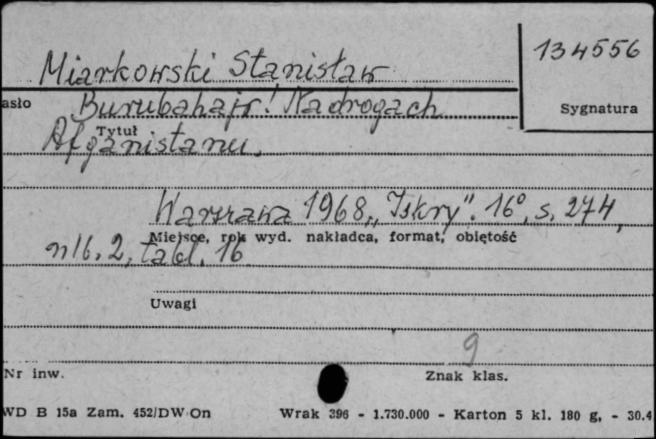 Miarkowski Stanisław
134556
asło
Burubahajr! Na drogach
Sygnatura
Tytuł
Afganistanu.
Warszawa 1968, „Iskry". 16°, s. 274,
Miejsce, rok wyd. nakładca, format, objętość
nlb. 2, tabl. 16
Uwagi
9
Nr inw.
Znak klas.
WD B 15a Zam. 452/DW On
Wrak 396 - 1.730.000 - Karton 5 kl. 180 g. - 30.4